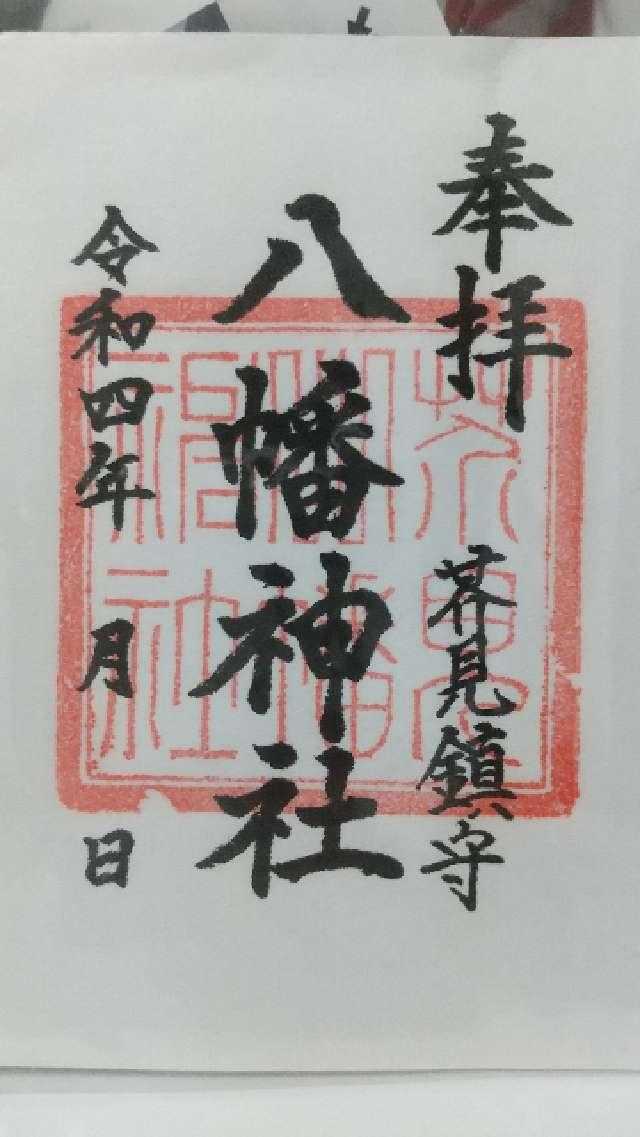 奉拝
芥見鎮守
八幡神社
令和四年 月 日
芥見
八幡
神社